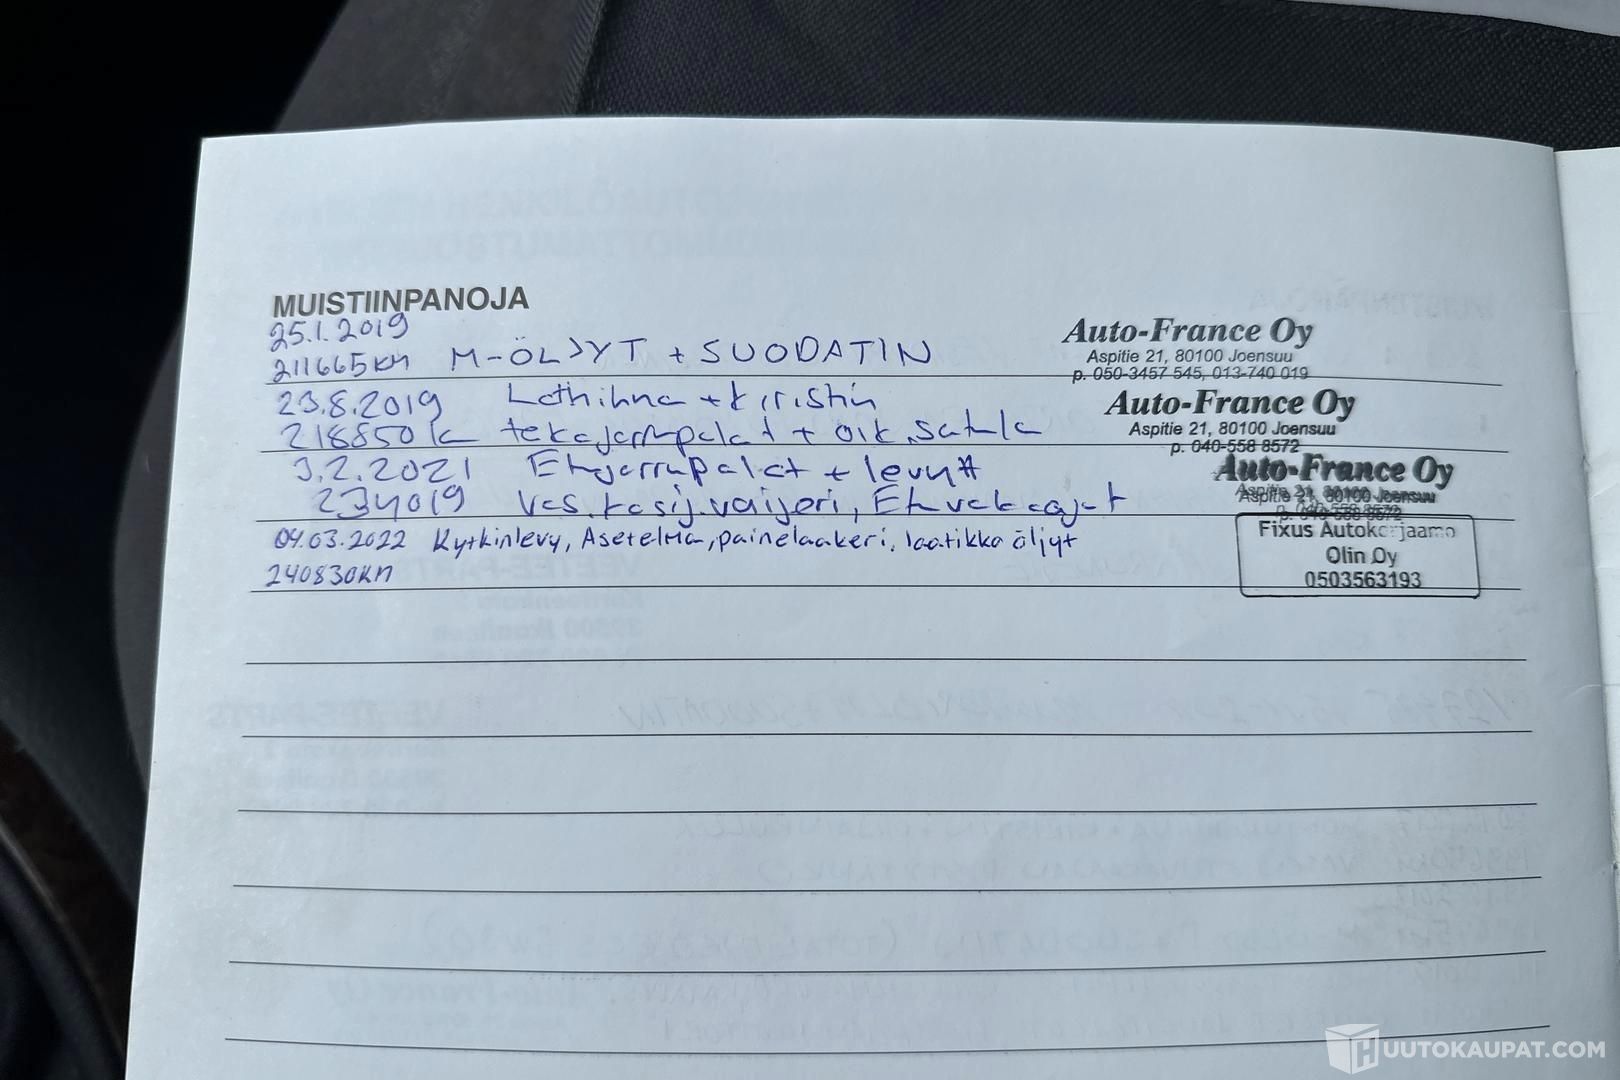 MUISTIINPANOJA
25.1.2019
211665KM M-ÖLJYT + SUODATIN
Auto-France Oy
Aspitie 21, 80100 Joensuu
p. 050-3457 545, 013-740 019
23.8.2019 Latihihna + kiristin
218850 takajarrupalat + oik. satula
Auto-France Oy
Aspitie 21, 80100 Joensuu
p. 040-558 8572
3.2.2021 Etujarrupalat + levyt
234019 Vas. käsij. vaijeri, Etuvakaajat
Auto-France Oy
Aspitie 21, 80100 Joensuu
p. 040-558 8572
04.03.2022 Kytkinlevy, Asetelma, painelaakeri, laatikko öljyt
240830KM
Fixus Autokorjaamo
Olin Oy
0503563193
HUUTOKAUPAT.COM